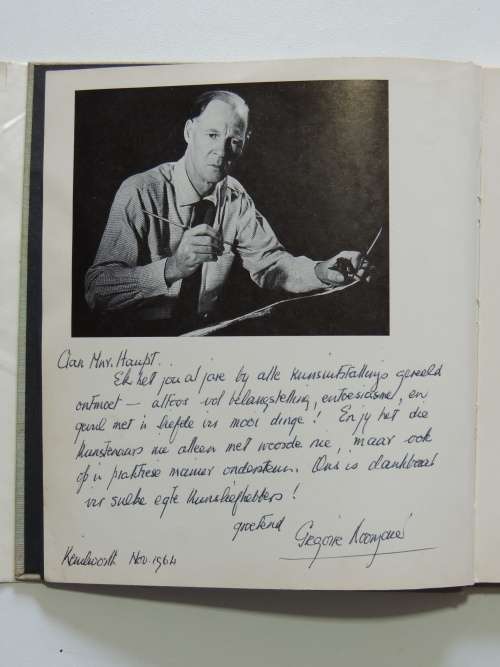 Aan Mnr. Haupt..
Ek het jou al jare by alle kunsuitstallings gereeld
ontmoet — altoos vol belangstelling, entoesiasme, en
gevul met 'n liefde vir mooi dinge! En jy het die
kunstenaars nie alleen met woorde nie, maar ook
op 'n praktiese manier ondersteun. Ons is dankbaar
vir sulke egte kunsliefhebbers!
groetend
Gregoire Boonzaier
Kenilworth Nov. 1964